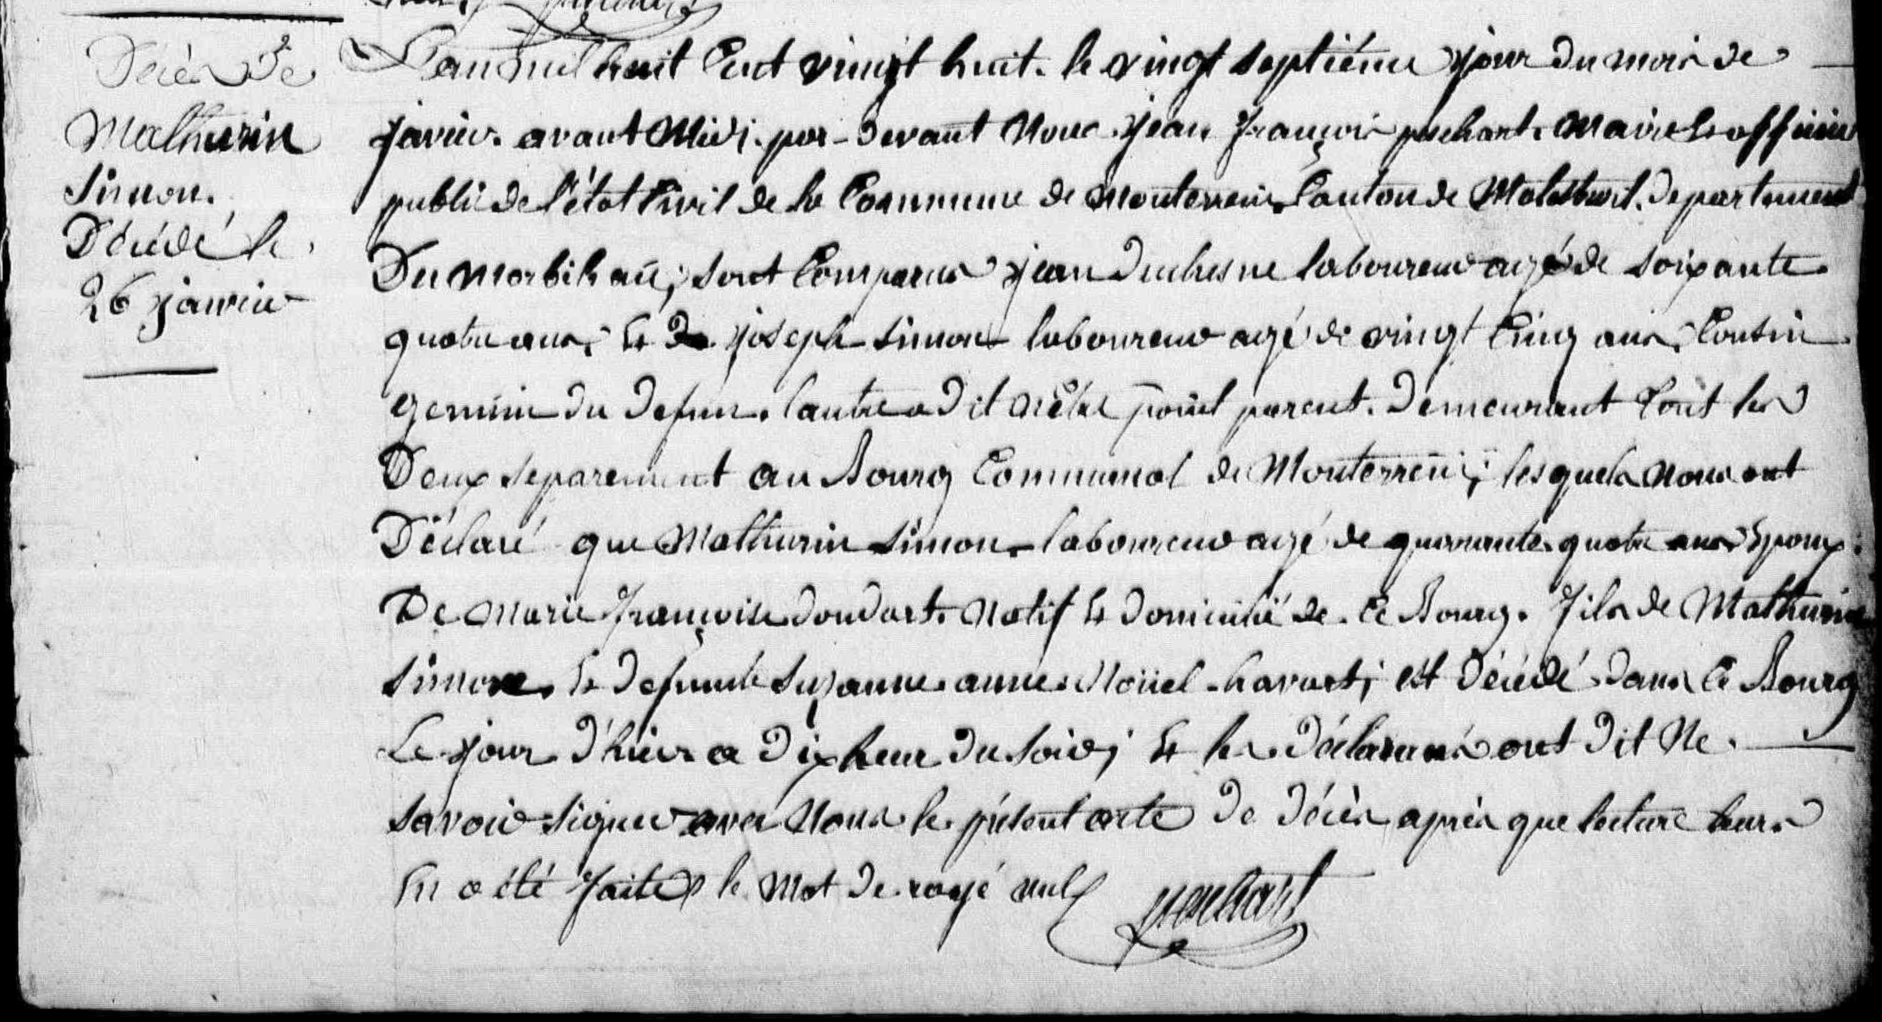 Décès de
Mathurin
Simon.
Décédé le
26 janvier
L'an mil huit Cent vingt huit. le vingt septiéme jour du mois de
javier. avant Midi. par-devant Nous. jean françois puchart. Maire & officier
publi de l'état Civil de la Commune de Monterrein, Canton de Malestroit. departement
Du Morbihan; sont Comparus jean Duchesne laboureur agé de soixante
quatre ans, Et De joseph simon laboureur agé de vingt Cinq ans, Cousin
germin du defun. l'autre a dit n'être point parent. demeurant tout les
Deux separement au Bourg Communal de Monterrein; lesquels Nous ont
Déclaré que Mathurin simon laboureur agé de quarante quatre ans Epoux
De Marie françoise doudart. Natif Et domicilié de ce Bourg. fils de Mathurin
simon. Et defunte suzanne anne Noüel havart; est décédé dans ce Bourg
Le jour d'hier a dix heur du soir; Et les déclarans ont dit Ne
savoir signer avec Nous le présent acte de décès après que lecture leurs
En a été faite le Mot de rayé nul